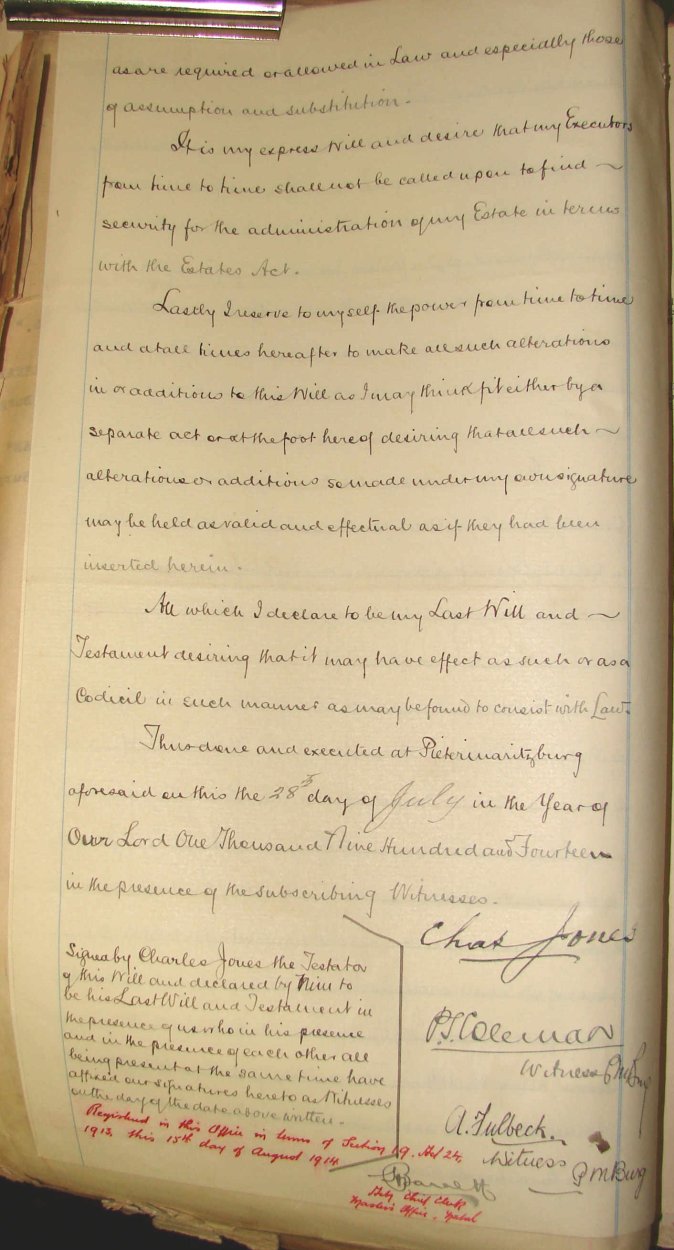 as are required or allowed in Law and especially those
of assumption and substitution.
It is my express Will and desire that my Executors
from time to time shall not be called upon to find ~
security for the administration of my Estate in terms
with the Estates Act.
Lastly I reserve to myself the power from time to time
and at all times hereafter to make all such alterations
in or additions to this Will as I may think fit either by a
separate act or at the foot hereof desiring that all such ~
alterations or additions so made under my own signature
may be held as valid and effectual as if they had been
inserted herein.
All which I declare to be my Last Will and ~
Testament desiring that it may have effect as such or as a
Codicil in such manner as may be found to consist with Law.
Thus done and executed at Pietermaritzburg
aforesaid on this the 28th day of July in the Year of
Our Lord One Thousand Nine Hundred and Fourteen
in the presence of the subscribing Witnesses.
Chas Jones
Signed by Charles Jones the Testator
of this Will and declared by him to
be his Last Will and Testament in
the presence of us who in his presence
and in the presence of each other all
being present at the same time have
affixed our signatures hereto as Witnesses
on the day of the date above written.
P.S. Coleman
Witness PMBurg
A. Fulbeck.
Witness
PMBurg
Registered in this Office in terms of Section 19. Act 24,
1913, this 15th day of August 1914
Chief Clerk
Master's Office, Natal